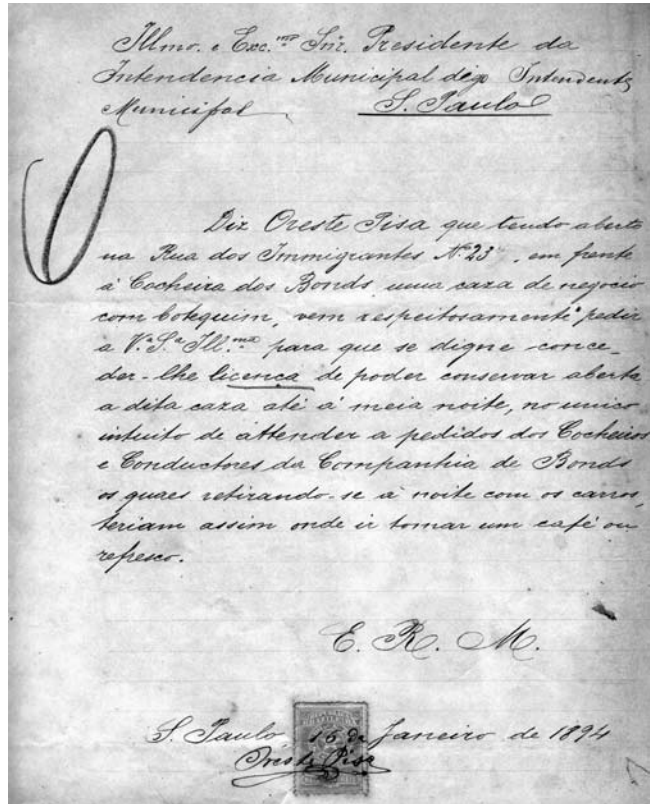 Illmo. e Exc.mo Snr. Presidente da
Intendencia Municipal digo Intendente
Municipal S. Paulo
Diz Oreste Pisa que tendo aberto
na Rua dos Immigrantes Nº 23, em frente
á Cocheira dos Bonds uma caza de negocio
com botequim, vem respeitosamente pedir
a V.ª S.ª Ill.ma para que se digne conce-
der-lhe licença de poder conservar aberta
a dita caza até á meia noite, no unico
intuito de attender a pedidos dos Cocheiros
e Conductores da Companhia de Bonds
os quaes retirando-se á noite com os carros,
teriam assim onde ir tomar um café ou
refresco.
E. R. M.
S. Paulo 15 de Janeiro de 1894
Oreste Pisa